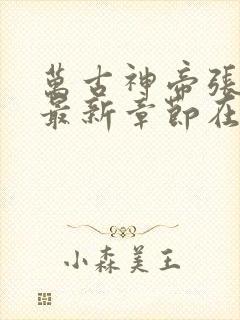 萬古神帝張
最新章節在
小森美王